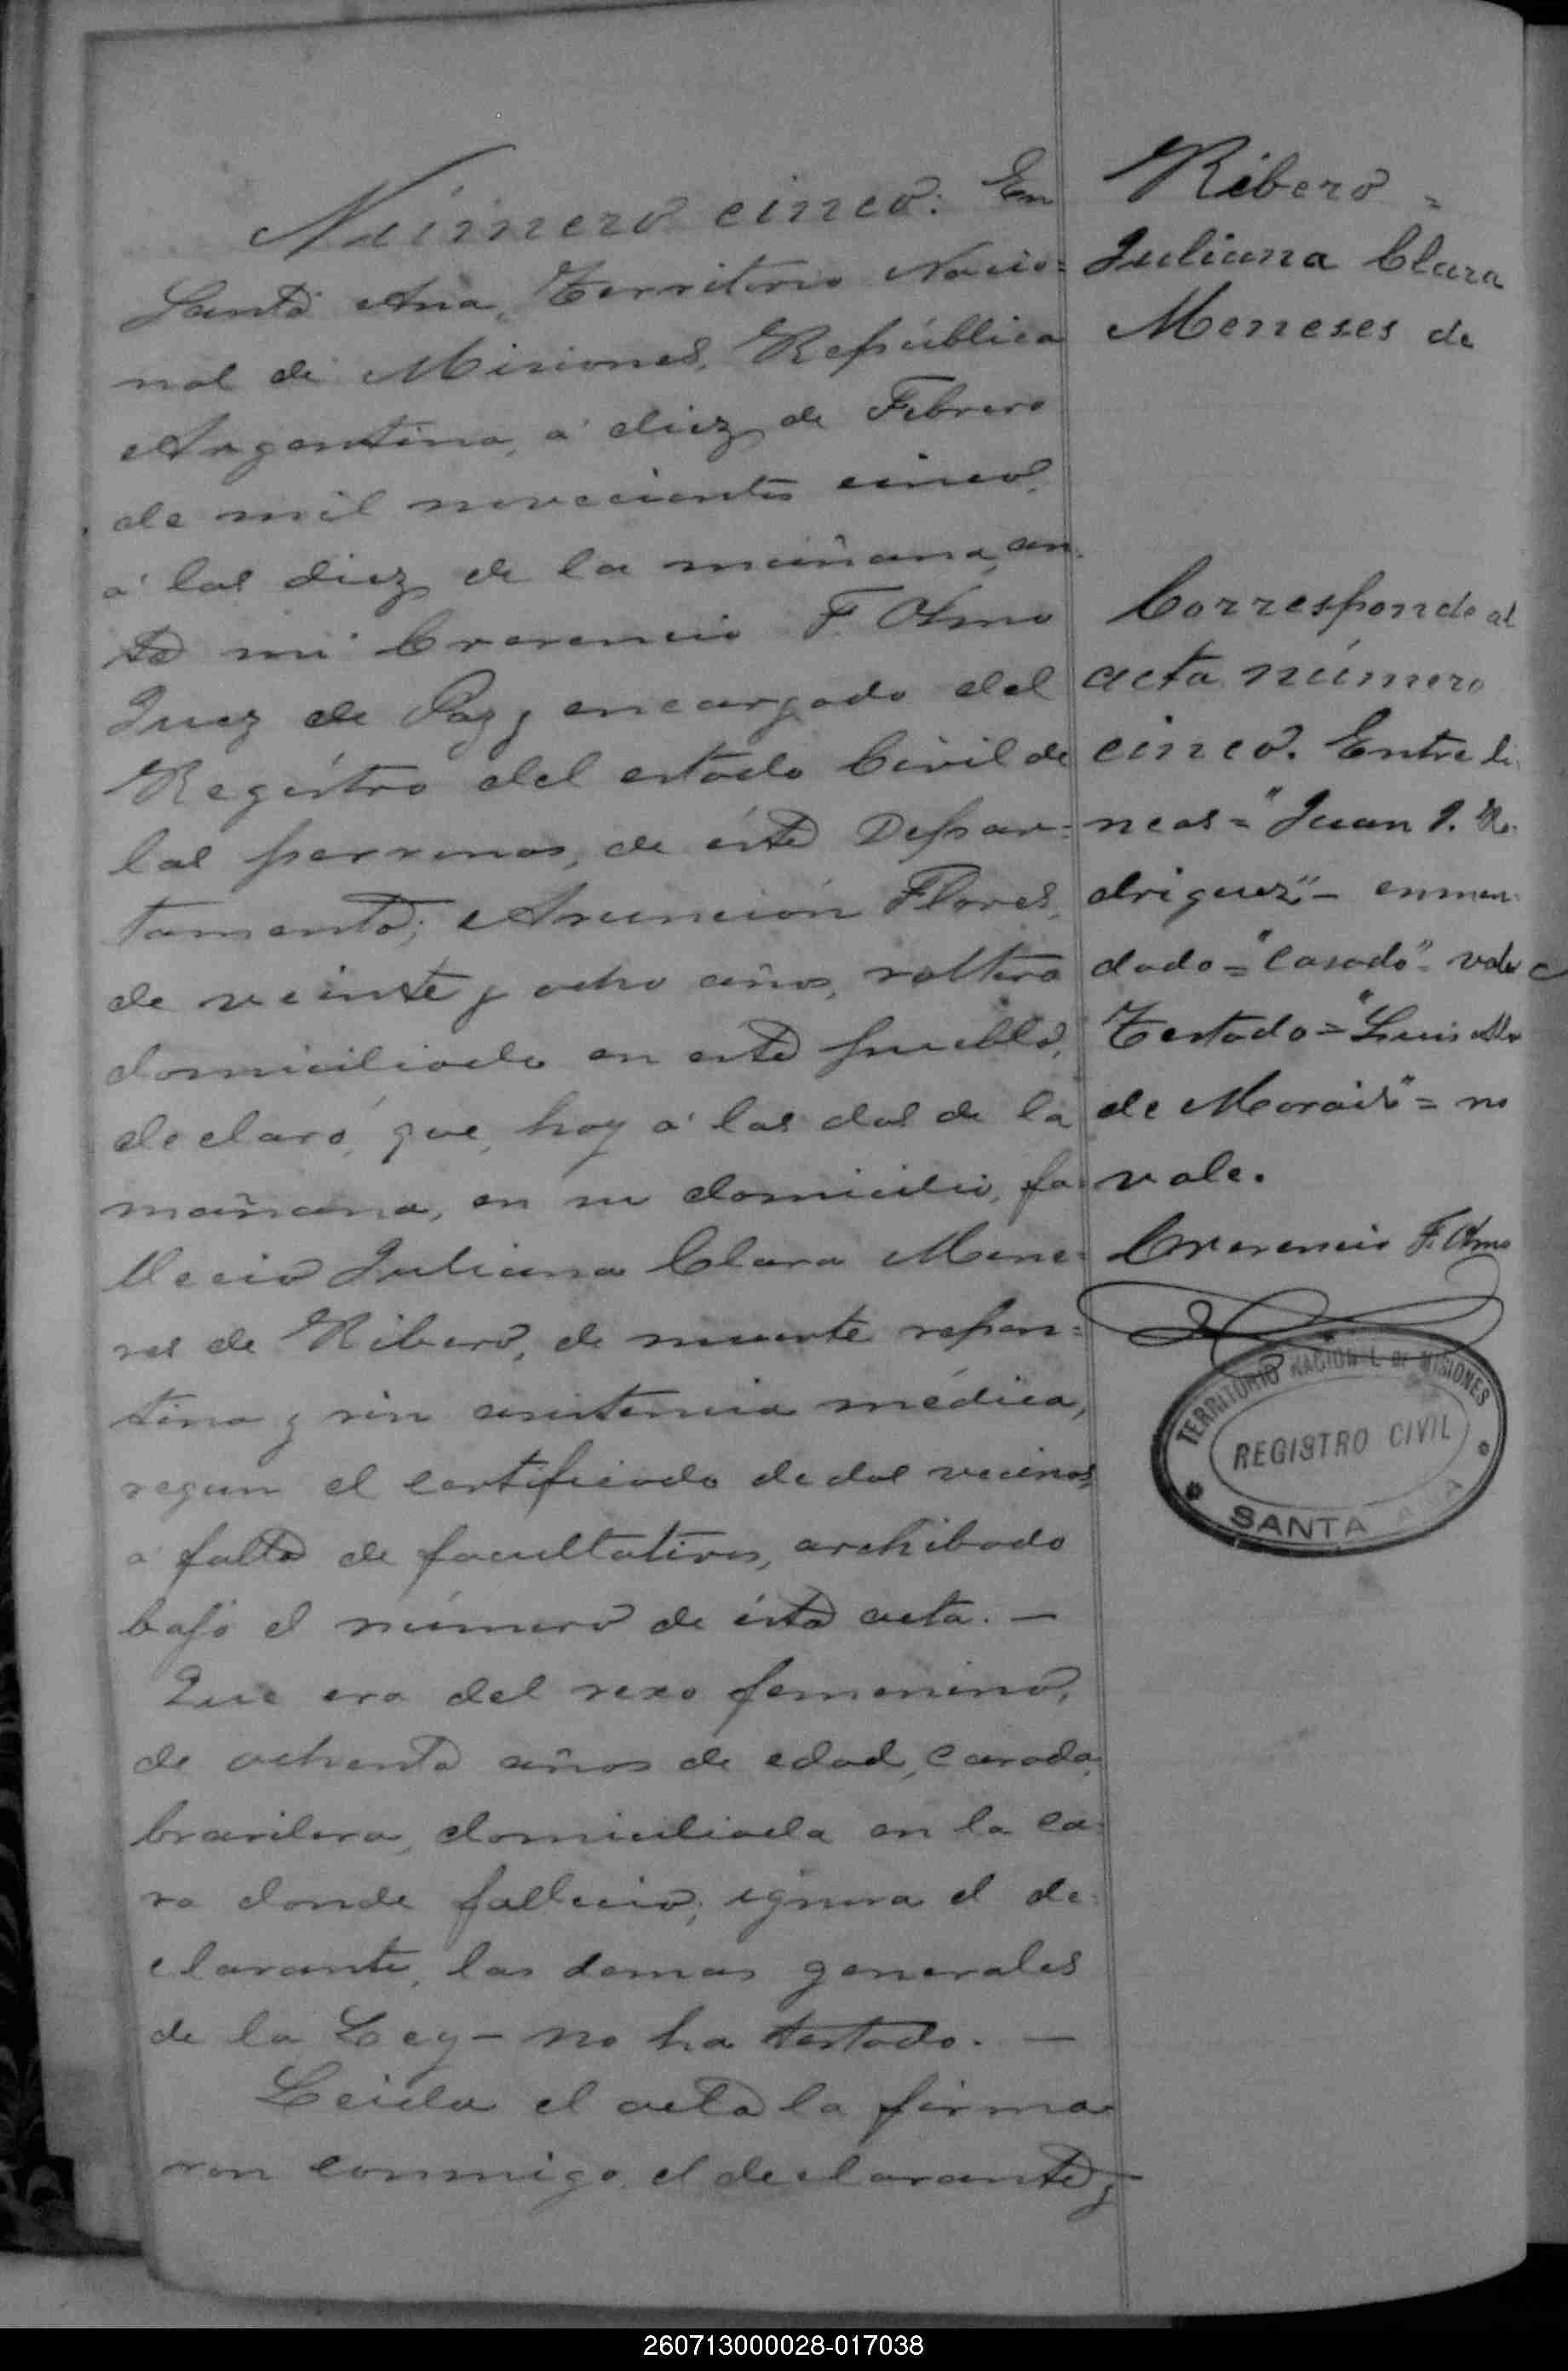 Número cinco. En
Santa Ana, Territorio Nacio=
nal de Misiones, República
Argentina, á diez de Febrero
de mil novecientos cinco,
á las diez de la mañana, an=
te mi Cresencio F. Olmo
Juez de Paz y encargado del
Registro del estado Civil de
las personas, de éste Depar=
tamento; Asunción Flores,
de veinte y ocho años, soltero
domiciliado en este pueblo,
declaró, que, hoy á las dos de la
mañana, en su domicilio, fa=
llecio Juliana Clara Mene=
ses de Ribero, de muerte repen=
tina y sin asistencia médica,
segun el certificado de dos vecinos,
á falta de facultativos, archibado
bajo el número de ésta acta. —
Que era del sexo femenino,
de ochenta años de edad, casada,
brasilera, domiciliada en la ca=
sa donde fallecio; ignora el de=
clarante, las demas generales
de la Ley — no ha testado. —
Leida el acta la firma=
ron conmigo, el declarante y
Ribero =
Juliana Clara
Meneses de
Corresponde al
acta número
cinco. Entre li=
neas = "Juan J. Ro=
driguez" — enmen=
dado = "casado" = vale
Testado = "Luis
de Morais" = no
vale.
Cresencio F. Olmo
TERRITORIO NACIONAL DE MISIONES
REGISTRO CIVIL
SANTA ANA
260713000028-017038